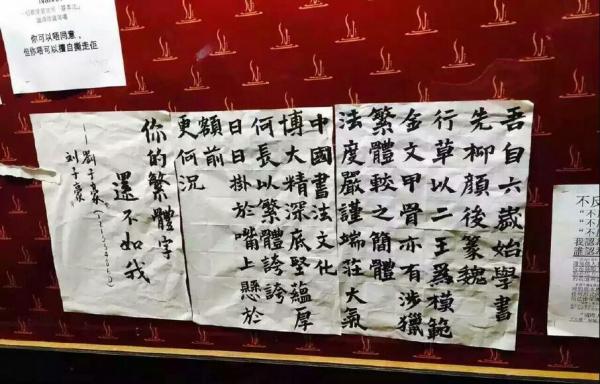 你可以唔同意，
但你唔可以擅自撕走佢
吾自六歲始學書
先柳顏後篆魏
行草以二王爲模範
金文甲骨亦有涉獵
繁體較之簡體
法度嚴謹端莊大氣
中國書法文化
博大精深底堅蘊厚
何長以繁體誇誇
日日掛於嘴上懸於
額前
更何況
你的繁體字
還不如我
——劉子豪
刘子豪
不反
"不
"不
"不
我認
誰認